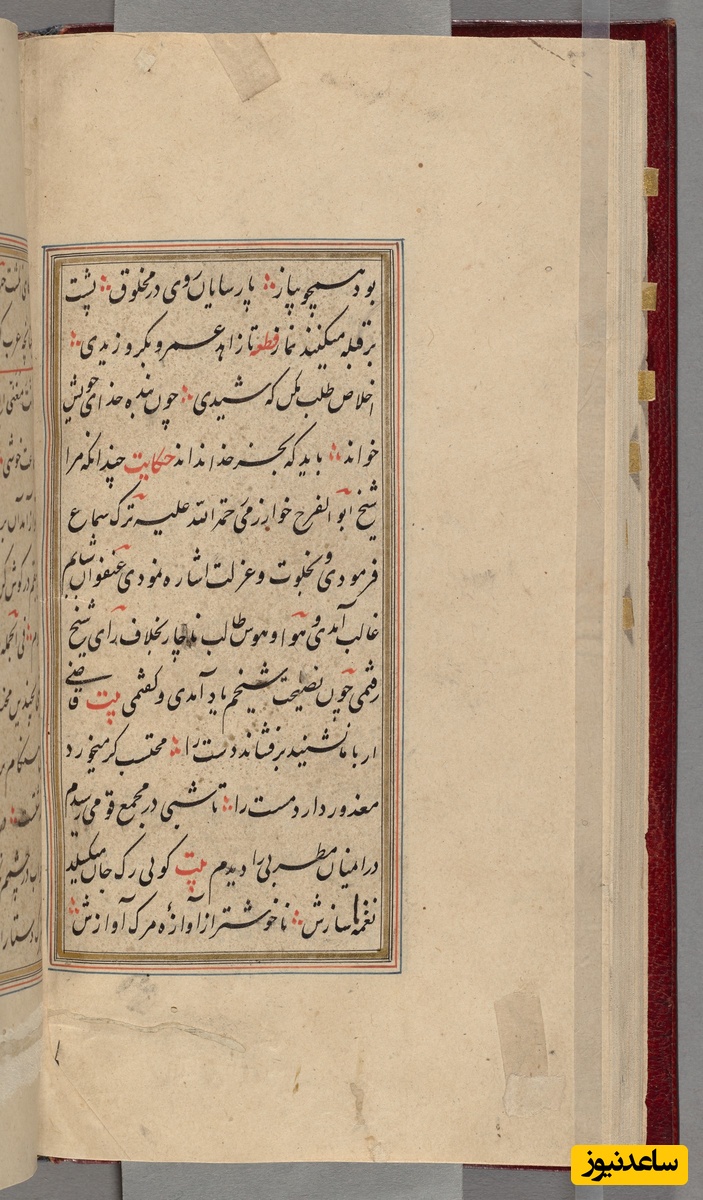 بود همچو پیاز پارسایان روی در مخلوق پشت
بر قبله میکنند نماز قطعه تا زاهد عمرو و بکر و زیدی
اخلاص طلب مکن که شیدی چون بنده خدای خویش
خواند باید که بجز خدا نداند حکایت چندانکه مرا
شیخ ابوالفرح خوارزمی رحمة الله علیه ترک سماع
فرمودی و بخلوت و عزلت اشاره نمودی عنفوان شبابم
غالب آمدی و هوا و هوس طالب ناچار بخلاف رای شیخ
رفتمی چون نصیحت شیخم یاد آمدی و گفتمی بیت قاضی
ار با ما نشیند بر فشاند دست را محتسب گر میخورد
معذور دارد مست را تا شبی در مجمع قومی رسیدم
در انمیان مطربی را دیدم بیت گویی رگ جان میکسلد
نغمه سازش ناخوشتر از آوازه مرگ آوازش
ساعدنیوز